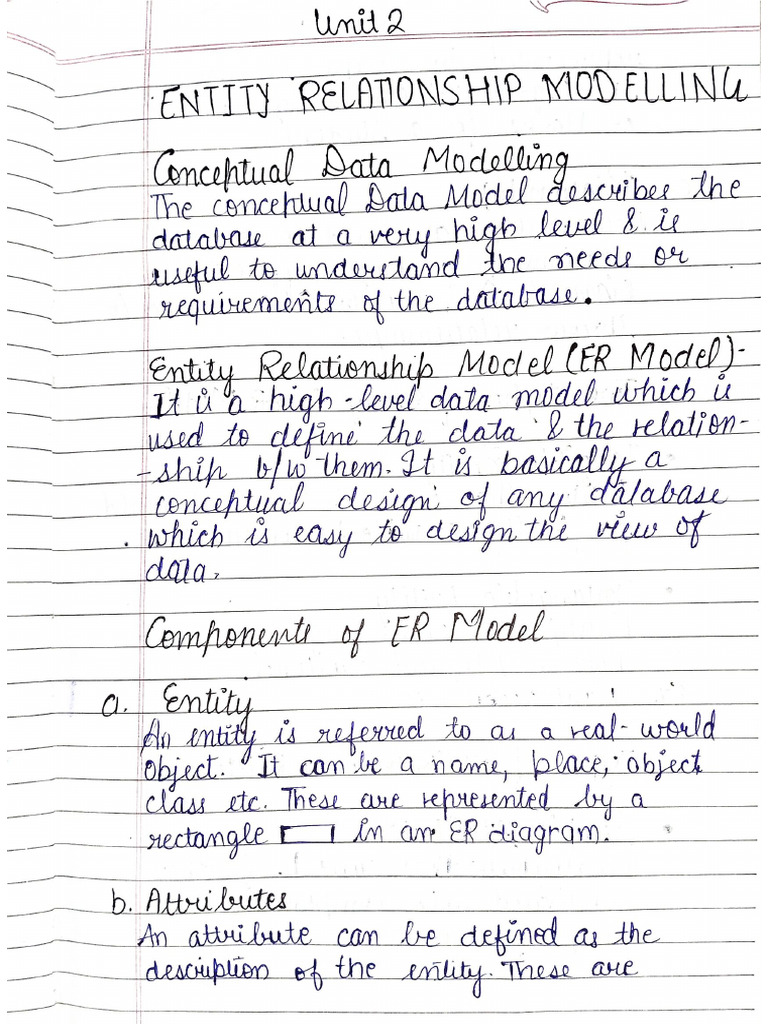 Unit 2
ENTITY RELATIONSHIP MODELLING
Conceptual Data Modelling
The conceptual Data Model describes the
database at a very high level & is
useful to understand the needs or
requirements of the database.
Entity Relationship Model (ER Model)-
It is a high-level data model which is
used to define the data & the relation-
-ship b/w them. It is basically a
conceptual design of any database
which is easy to design the view of
data.
Components of ER Model
a. Entity
An entity is referred to as a real-world
object. It can be a name, place, object
class etc. These are represented by a
rectangle in an ER diagram.
b. Attributes
An attribute can be defined as the
description of the entity. These are